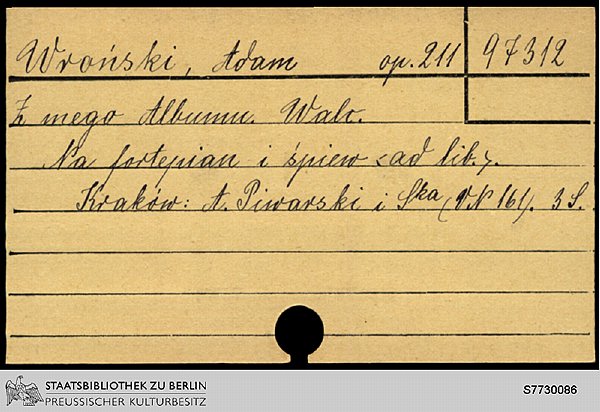 Wroński, Adam op. 211 97312
Z mego Albumu. Walc.
Na fortepian i śpiew <ad lib.>.
Kraków: A. Piwarski i Ska (VN 161). 3 S.
STAATSBIBLIOTHEK ZU BERLIN
PREUSSISCHER KULTURBESITZ
S7730086